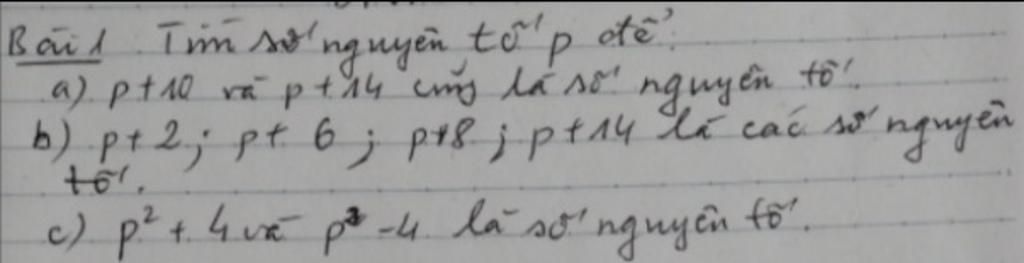 Bài 1 Tìm số nguyên tố p để:
a) p+10 và p+14 cũng là số nguyên tố.
b) p+2; p+ 6; p+8; p+14 là các số nguyên
tố.
c) p² + 4 và p² -4 là số nguyên tố.